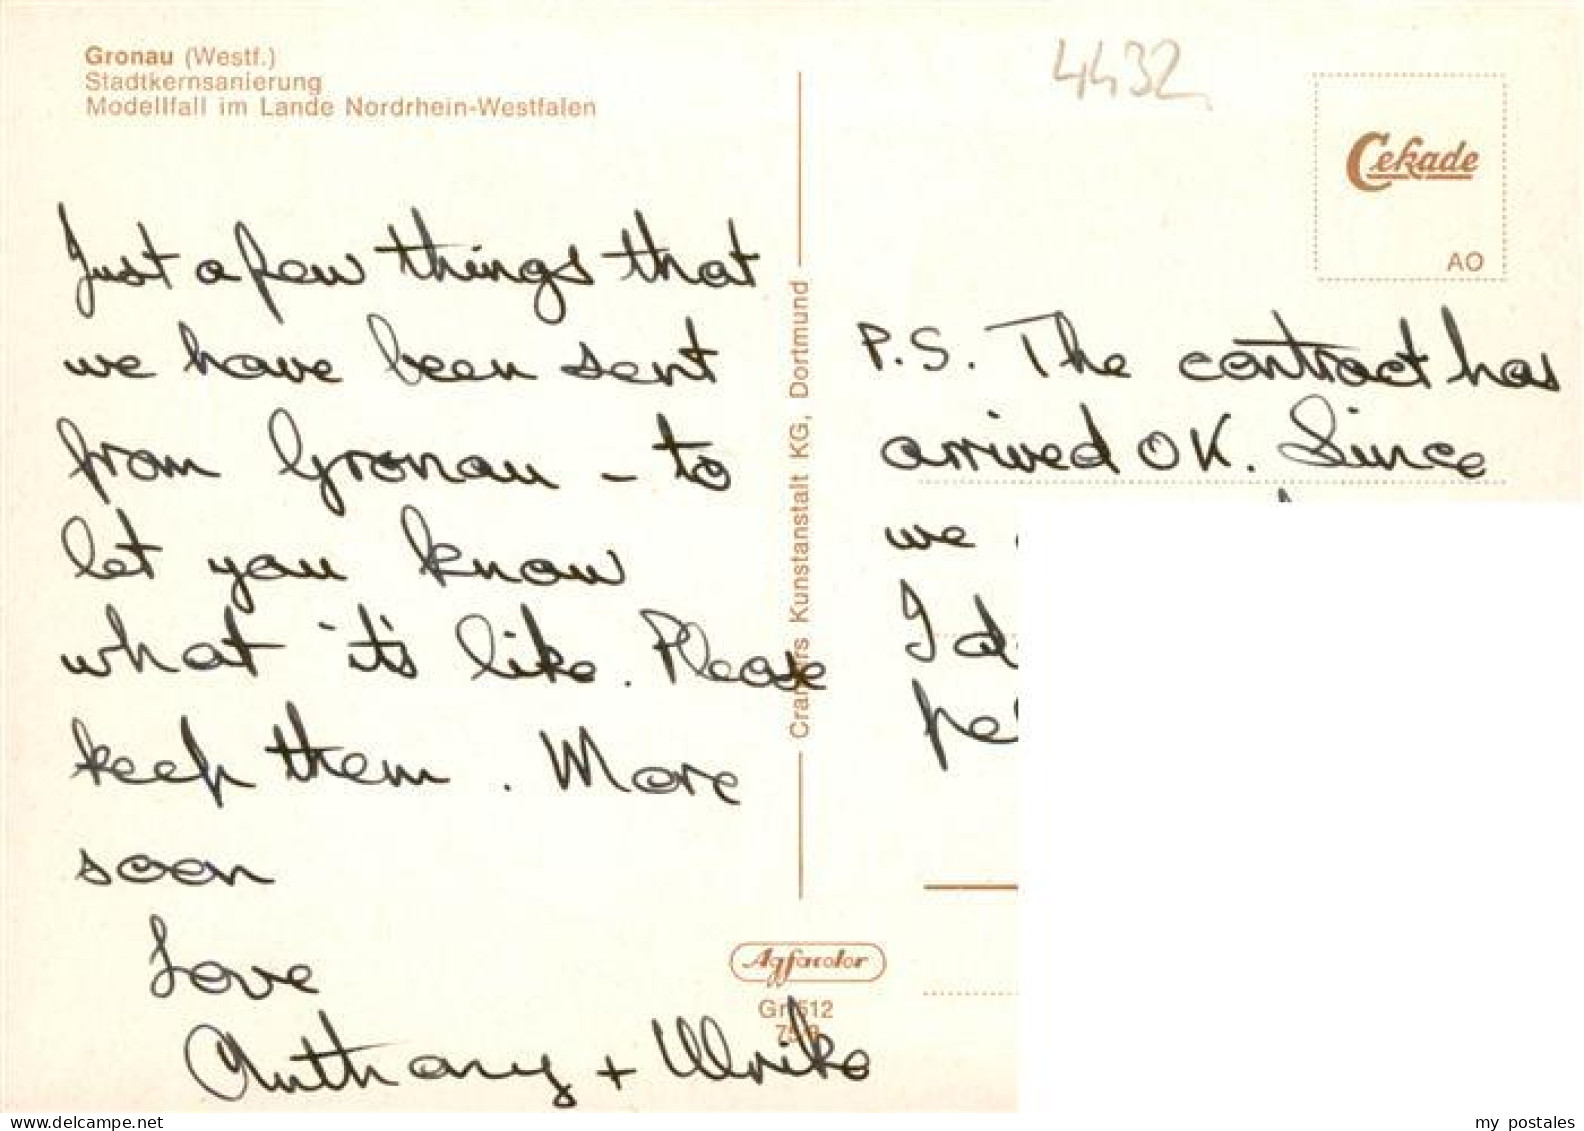 Gronau (Westf.)
Stadtkernsanierung
Modellfall im Lande Nordrhein-Westfalen
4432
Cekade
AO
Just a few things that
we have been sent
from Gronau – to
let you know
what it's like. Please
keep them. More
soon
Love
Anthony + Ulrike
Kunstanstalt KG, Dortmund
P.S. The contract has
arrived OK. Since
we
I
Agfacolor
www.delcampe.net
my postales